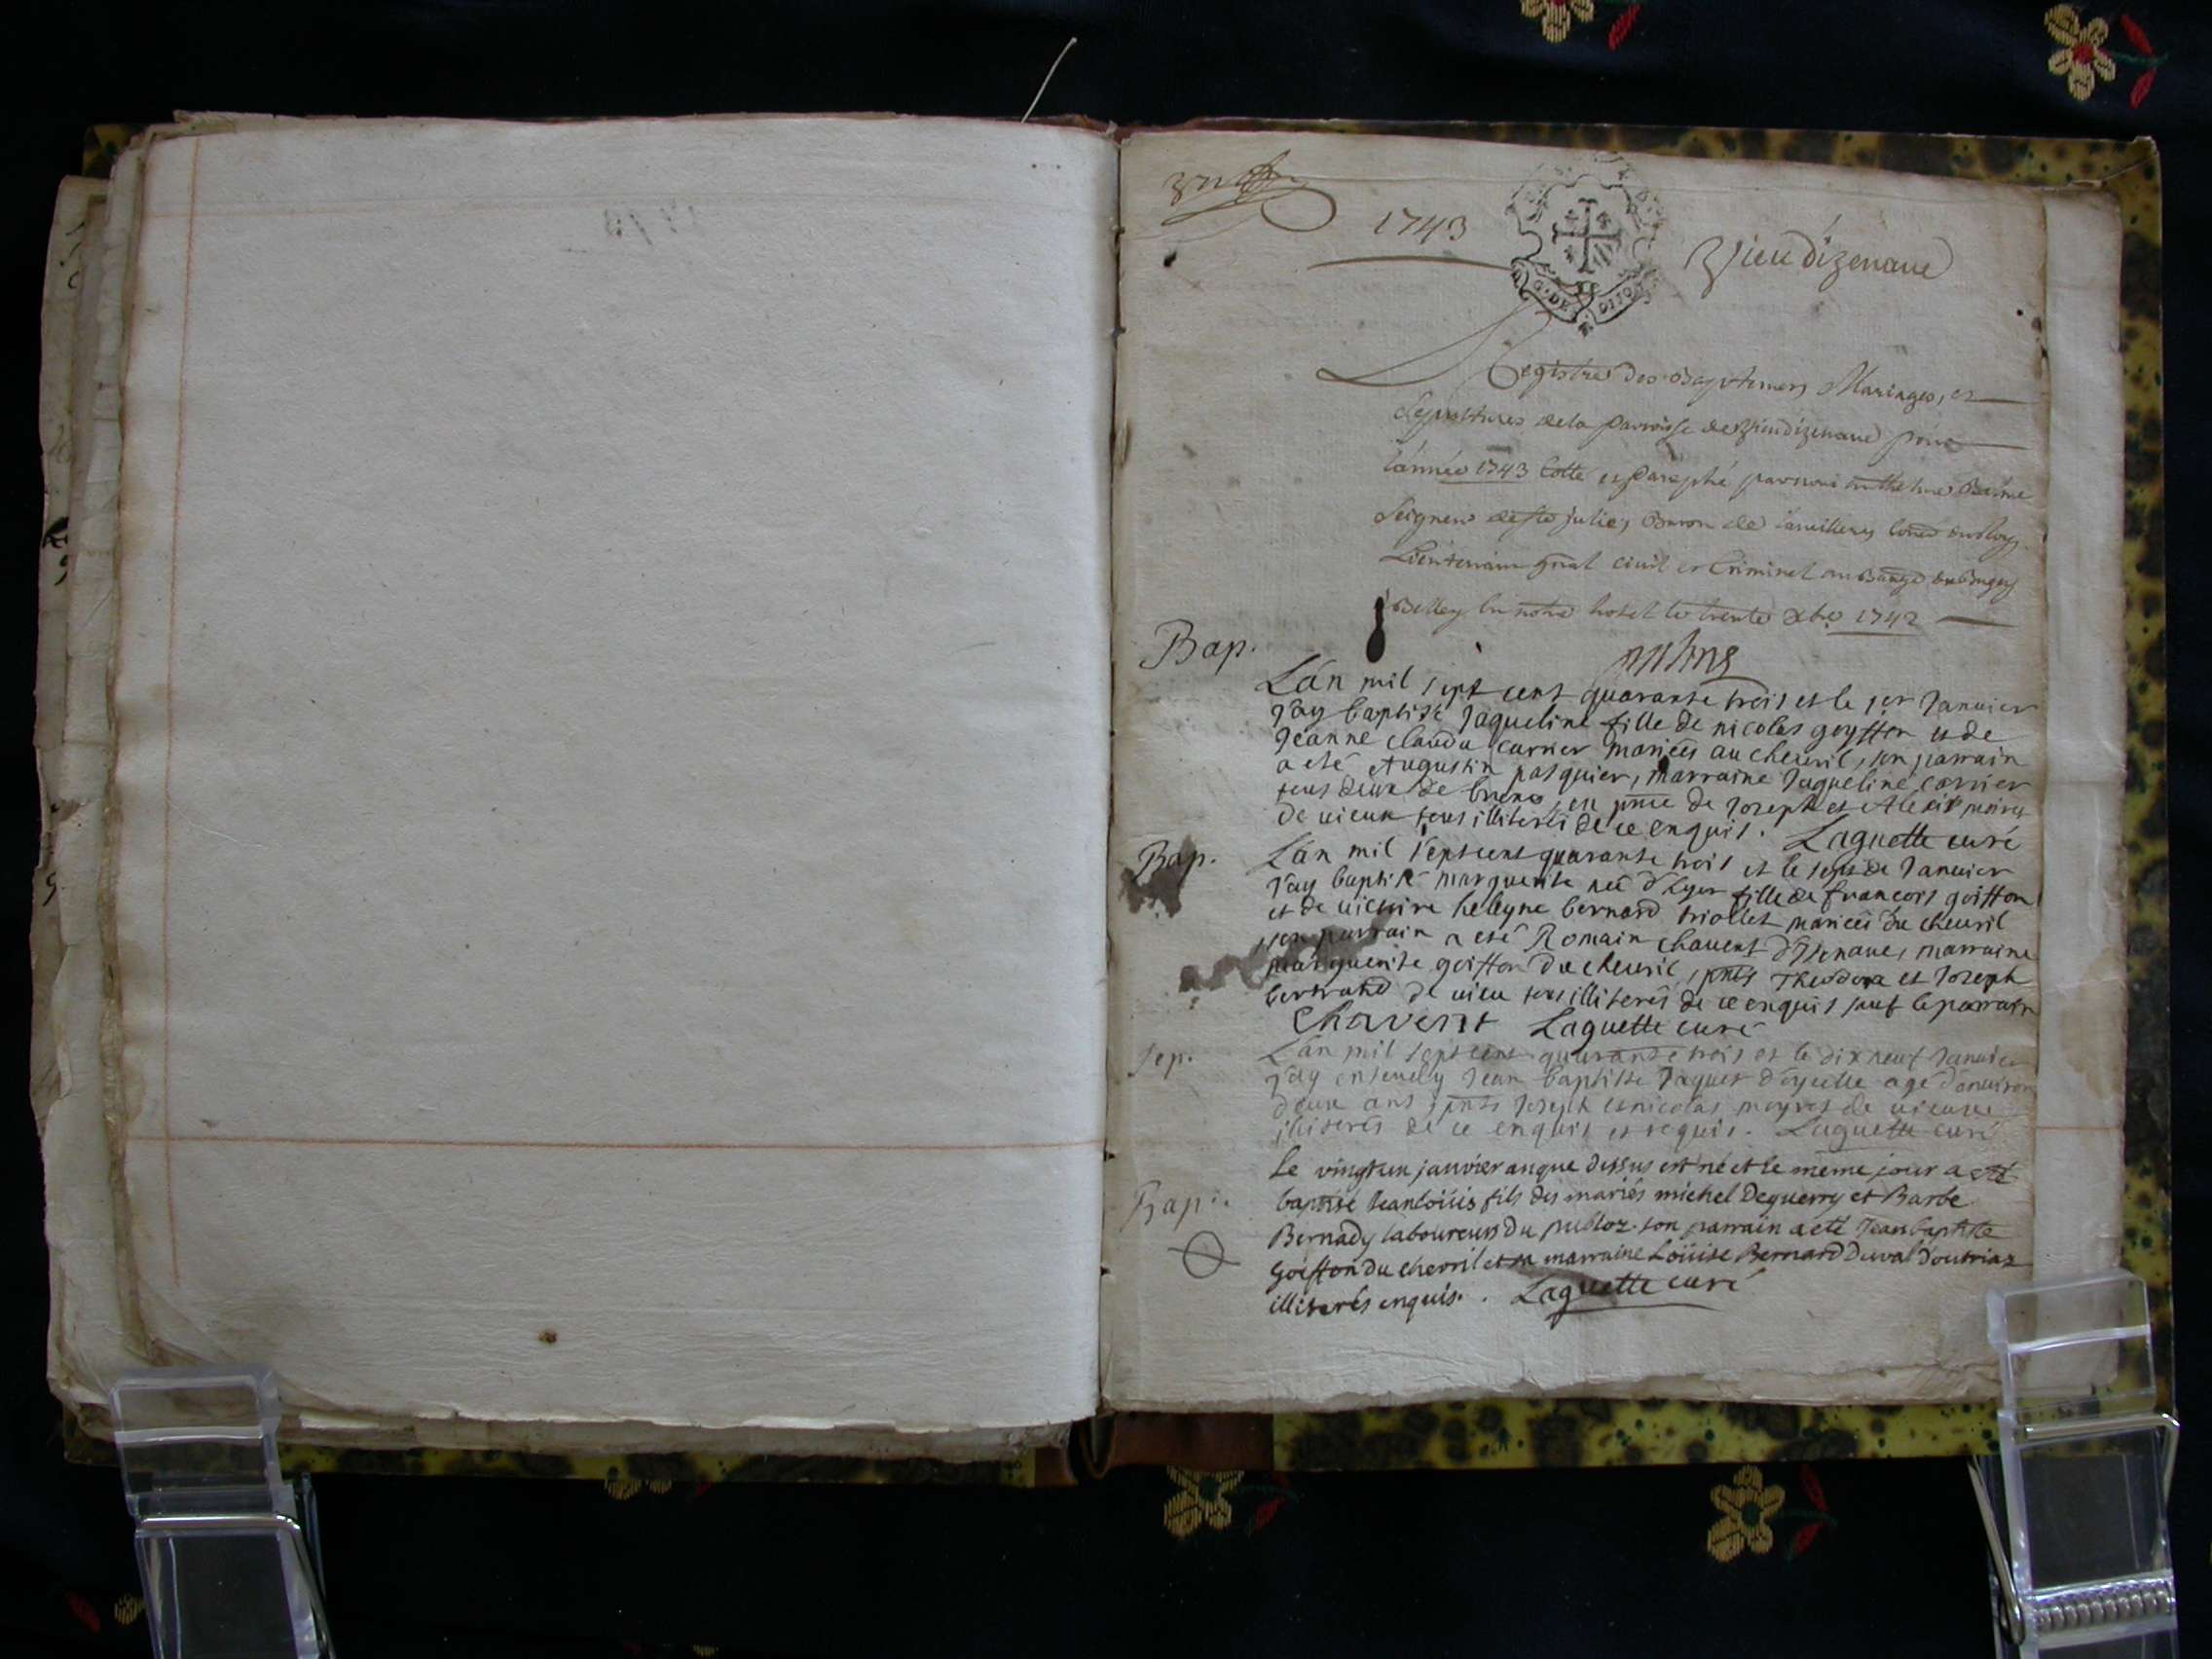 1743
Vieu dizenave
G. DE DIJON
Registre des Baptemes, Mariages, et
Sepultures de la parroisse de Vieudizenave pour
l'année 1743 Cotté et paraphé par nous Anthelme
Seigneur de Ste julie, Baron de
Lieutenant gnal civil et Criminel au du Bugey
Belley en notre hotel le trente xbre 1742
Bap.
L'an mil sept cent quarante trois et le 1er Janvier
J'ay baptisé Jaqueline fille de nicolas goyffon et de
Jeanne clauda carrier mariés au chevril, son parrain
a esté Augustin pasquier, marraine Jaqueline carrier
tous deux de en pnce de Joseph et Alexis
de vieux tous illiterés de ce enquis. Laguette curé
Bap.
L'an mil sept cent quarante trois et le sept de Janvier
J'ay baptisé marguerite neé d'hyer fille de francois goiffon
et de victoire heleyne bernard triollet marieés du chevril
son parrain a esté Romain Chavent d'Izenave, marraine
marguerite goiffon du chevril, pnts Theodore et Joseph
bertrand de vieu tous illiterés de ce enquis sauf le parrain
Chavent Laguette curé
Sep.
L'an mil sept cent quarante trois et le dix neuf Janvier
J'ay ensevely Jean baptiste Jaques agé d'environ
deux ans, pnts Joseph et nicolas de vieux
illiterés de ce enquis et requis. Laguette curé
Bap.
le vingt un janvier an que dessus est né et le même jour a eté
baptisé Jean loüis fils des mariés michel Deguerry et Barbe
Bernady laboureurs du publoz. son parrain a eté Jean baptiste
Goiffon du chevril et sa marraine Loüise Bernard du val d'outriaz
illiterés enquis. Laguette curé